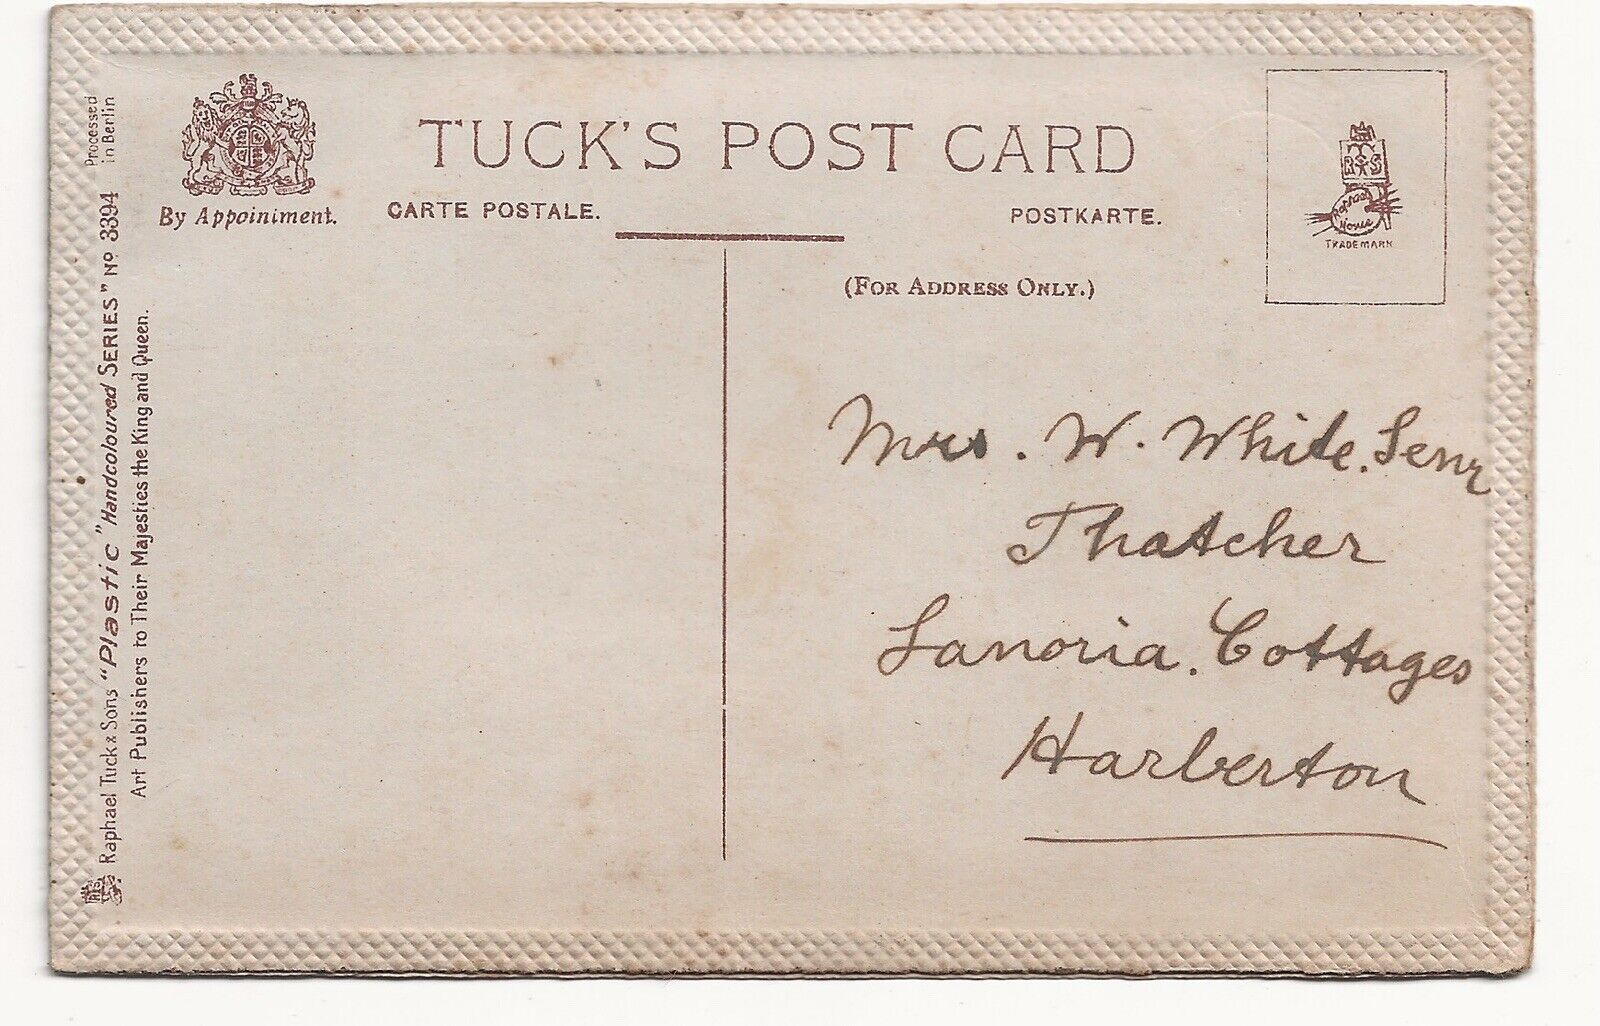 Processed
in Berlin
By Appointment.
TUCK'S POST CARD
CARTE POSTALE.
POSTKARTE.
(FOR ADDRESS ONLY.)
R S
Raphael
House
TRADE MARK
Raphael Tuck & Sons "Plastic" "Handcoloured SERIES" No 3394
Art Publishers to Their Majesties the King and Queen.
Mrs. W. White. Senr
Thatcher
Lanoria. Cottages
Harberton